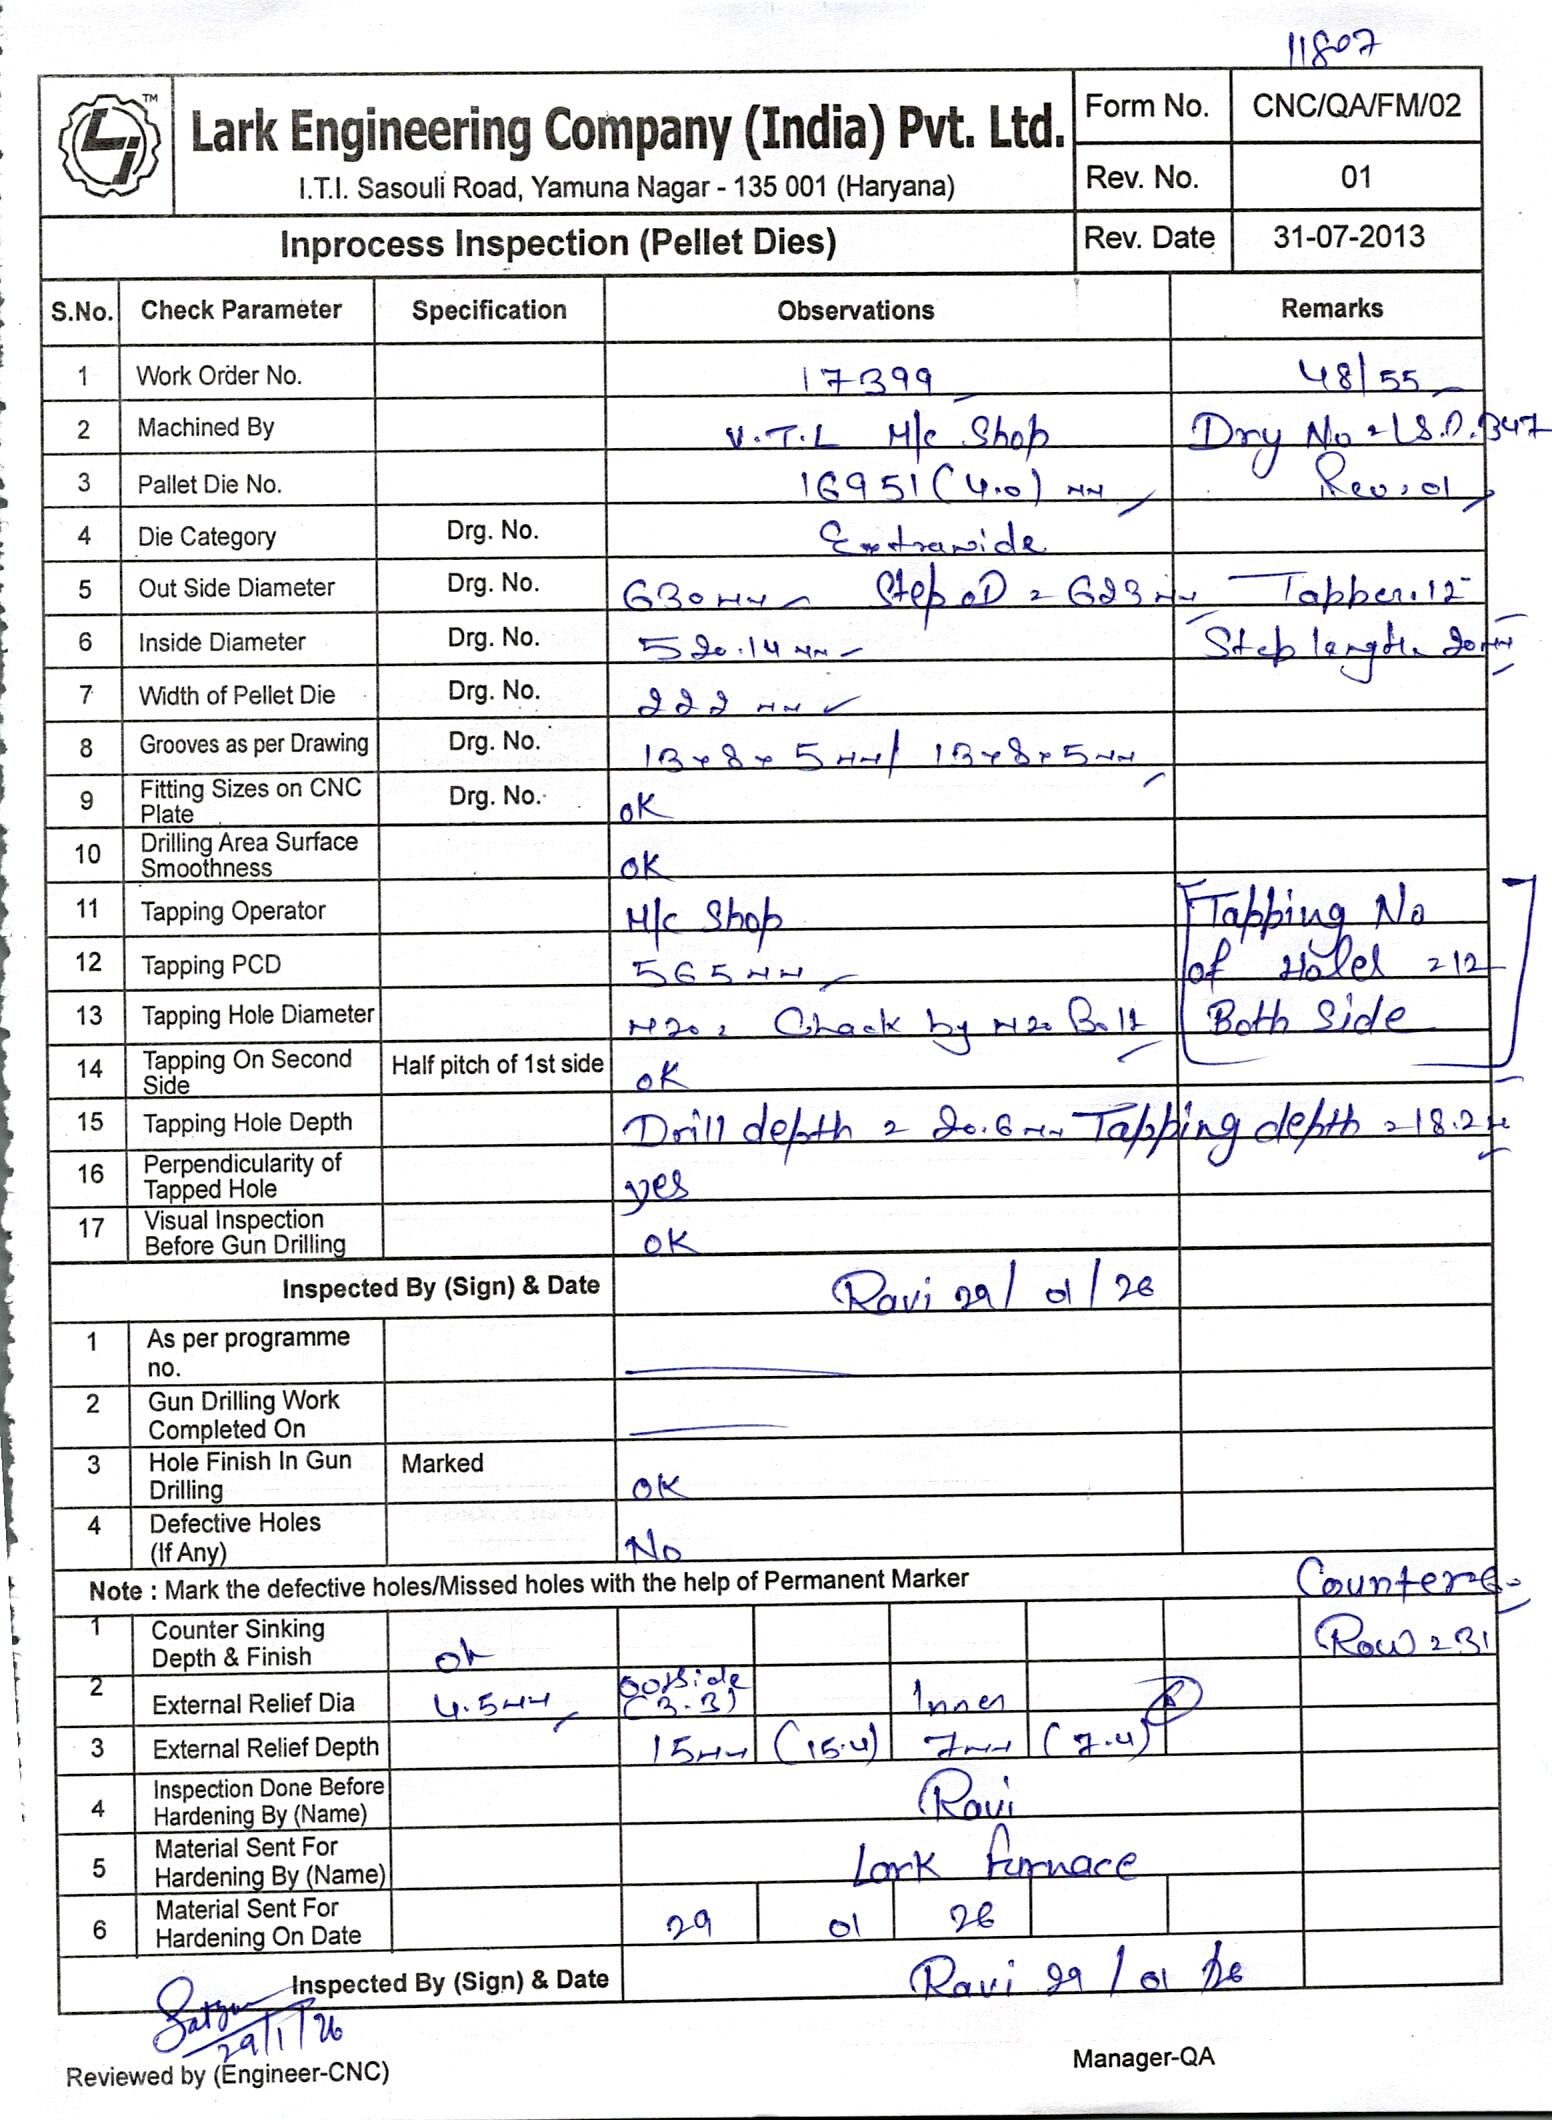 11807
TM
Lark Engineering Company (India) Pvt. Ltd.
I.T.I. Sasouli Road, Yamuna Nagar - 135 001 (Haryana)
Form No. CNC/QA/FM/02
Rev. No. 01
Inprocess Inspection (Pellet Dies)
Rev. Date 31-07-2013
S.No. Check Parameter Specification Observations Remarks
1 Work Order No. 17399 48/55
2 Machined By V.T.L M/c Shop Dry No = L.S.D.347
3 Pallet Die No. 16951 (4.0) mm Rev. 01
4 Die Category Drg. No. Extrawide
5 Out Side Diameter Drg. No. 630mm Step OD = 623mm Tapper.12
6 Inside Diameter Drg. No. 520.14mm Step length = 20mm
7 Width of Pellet Die Drg. No. 222 mm
8 Grooves as per Drawing Drg. No. 13x8x5mm/ 13x8x5mm
9 Fitting Sizes on CNC Plate Drg. No. OK
10 Drilling Area Surface Smoothness OK
11 Tapping Operator M/c Shop Tapping No
12 Tapping PCD 565mm of Holes = 12
13 Tapping Hole Diameter M20, Chack by M20 Bolt Both Side
14 Tapping On Second Side Half pitch of 1st side OK
15 Tapping Hole Depth Drill depth = 20.6mm Tapping depth = 18.2
16 Perpendicularity of Tapped Hole yes
17 Visual Inspection Before Gun Drilling OK
Inspected By (Sign) & Date Ravi 29/01/26
1 As per programme no.
2 Gun Drilling Work Completed On
3 Hole Finish In Gun Drilling Marked OK
4 Defective Holes (If Any) No
Note : Mark the defective holes/Missed holes with the help of Permanent Marker Counter
1 Counter Sinking Depth & Finish ok Row = 31
2 External Relief Dia 4.5mm Outside (3.3) Inner
3 External Relief Depth 15mm (15.4) 7mm (7.4)
4 Inspection Done Before Hardening By (Name) Ravi
5 Material Sent For Hardening By (Name) Lark furnace
6 Material Sent For Hardening On Date 29 01 26
Inspected By (Sign) & Date Ravi 29/01/26
29/1/26
Reviewed by (Engineer-CNC) Manager-QA